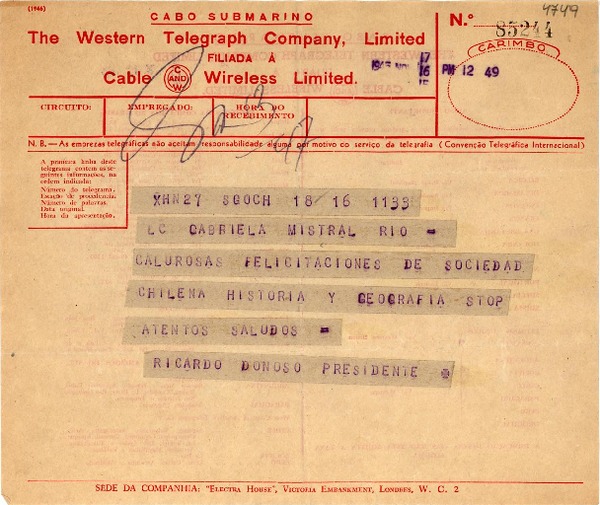 (1946)
CABO SUBMARINO
The Western Telegraph Company, Limited
FILIADA Á
Cable C AND W Wireless Limited.
N.º 85244
4749
CARIMBO
PM 12 49
CIRCUITO: EMPREGADO: HORA DO RECEBIMENTO
N. B. — As emprezas telegráficas não aceitam responsabilidade alguma por motivo do serviço da telegrafia (Convenção Telegráfica Internacional)
A primeira linha deste
telegrama contem as seguintes informações, na
ordem indicada:
Número do telegrama.
Estação de procedencia.
Número de palavras.
Data original.
Hora da apresentação.
XHN27 SGOCH 18/16 1133
LC GABRIELA MISTRAL RIO =
CALUROSAS FELICITACIONES DE SOCIEDAD
CHILENA HISTORIA Y GEOGRAFIA STOP
ATENTOS SALUDOS =
RICARDO DONOSO PRESIDENTE
SEDE DA COMPANHIA: "ELECTRA HOUSE", VICTORIA EMBANKMENT, LONDRES, W. C. 2